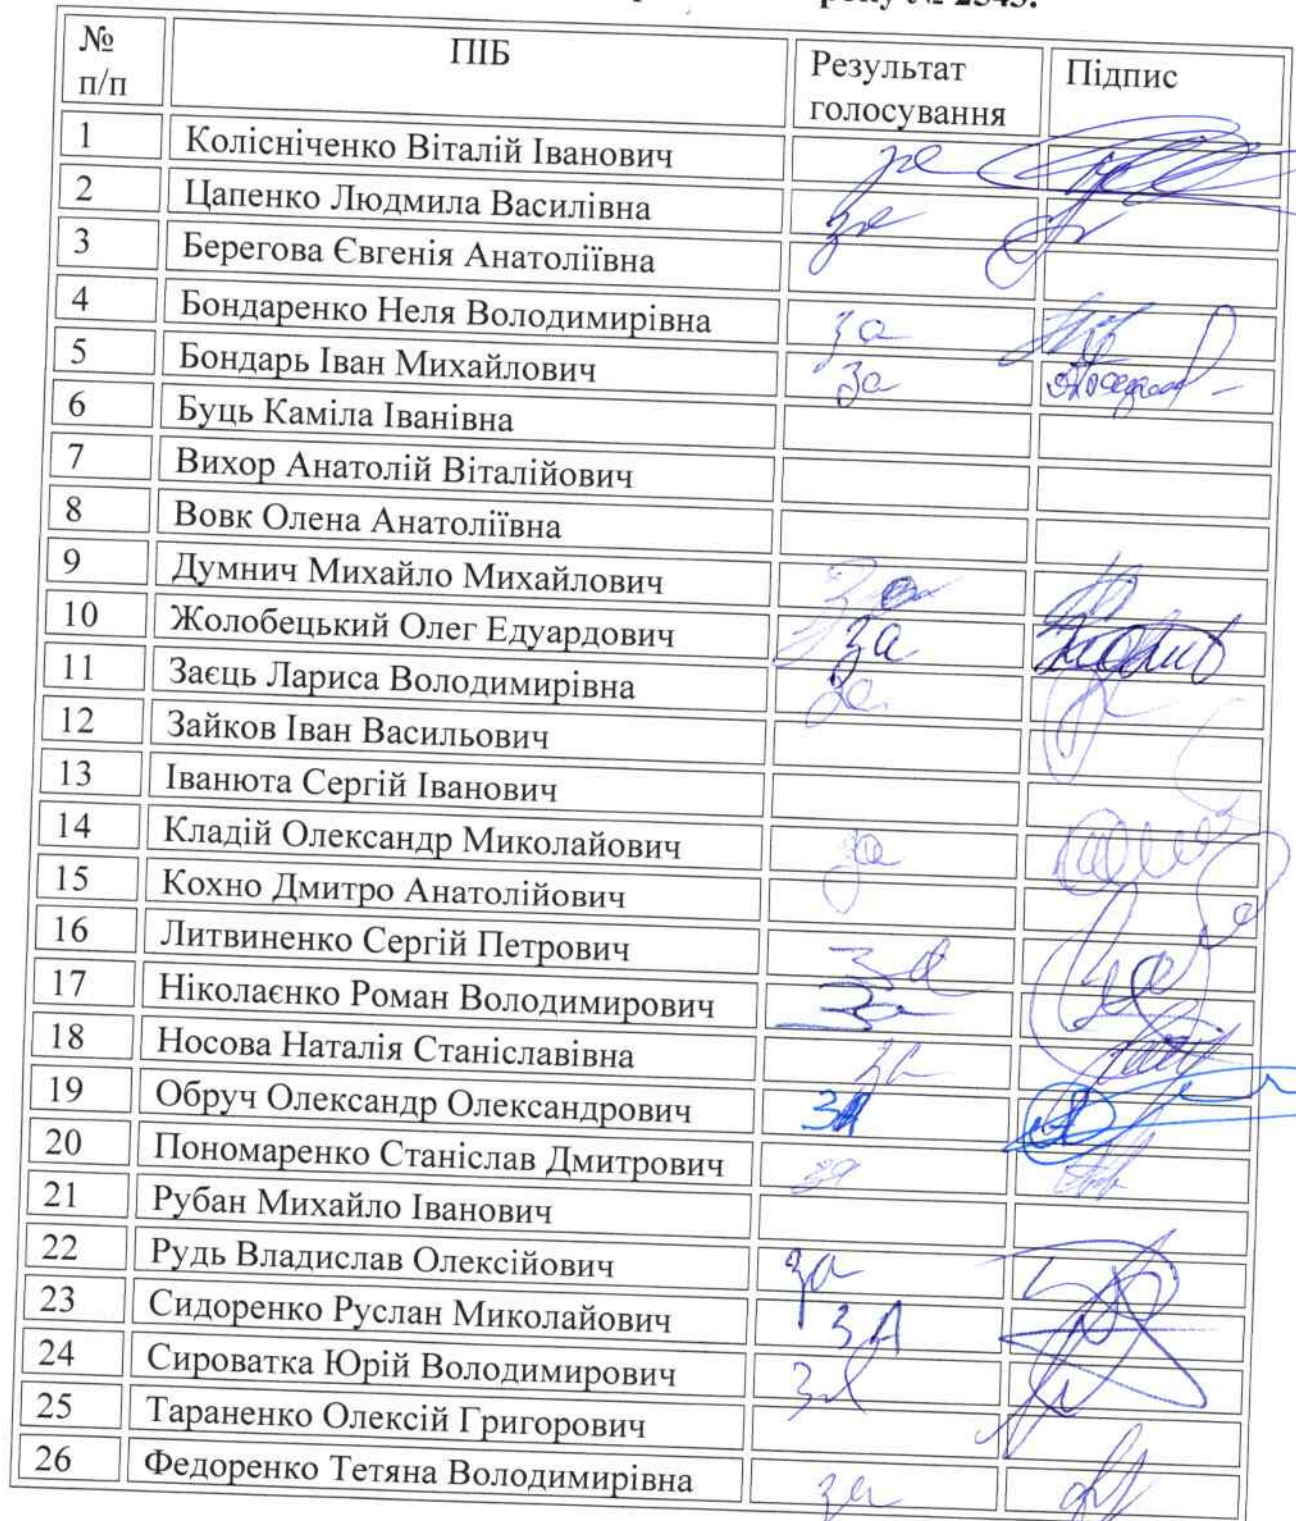 № 2343.
№ п/п ПІБ Результат голосування Підпис
1 Колісніченко Віталій Іванович за
2 Цапенко Людмила Василівна за
3 Берегова Євгенія Анатоліївна
4 Бондаренко Неля Володимирівна за
5 Бондарь Іван Михайлович за
6 Буць Каміла Іванівна
7 Вихор Анатолій Віталійович
8 Вовк Олена Анатоліївна
9 Думнич Михайло Михайлович за
10 Жолобецький Олег Едуардович за
11 Заєць Лариса Володимирівна за
12 Зайков Іван Васильович
13 Іванюта Сергій Іванович
14 Кладій Олександр Миколайович за
15 Кохно Дмитро Анатолійович
16 Литвиненко Сергій Петрович за
17 Ніколаєнко Роман Володимирович за
18 Носова Наталія Станіславівна за
19 Обруч Олександр Олександрович ЗА
20 Пономаренко Станіслав Дмитрович за
21 Рубан Михайло Іванович
22 Рудь Владислав Олексійович за
23 Сидоренко Руслан Миколайович ЗА
24 Сироватка Юрій Володимирович за
25 Тараненко Олексій Григорович
26 Федоренко Тетяна Володимирівна за